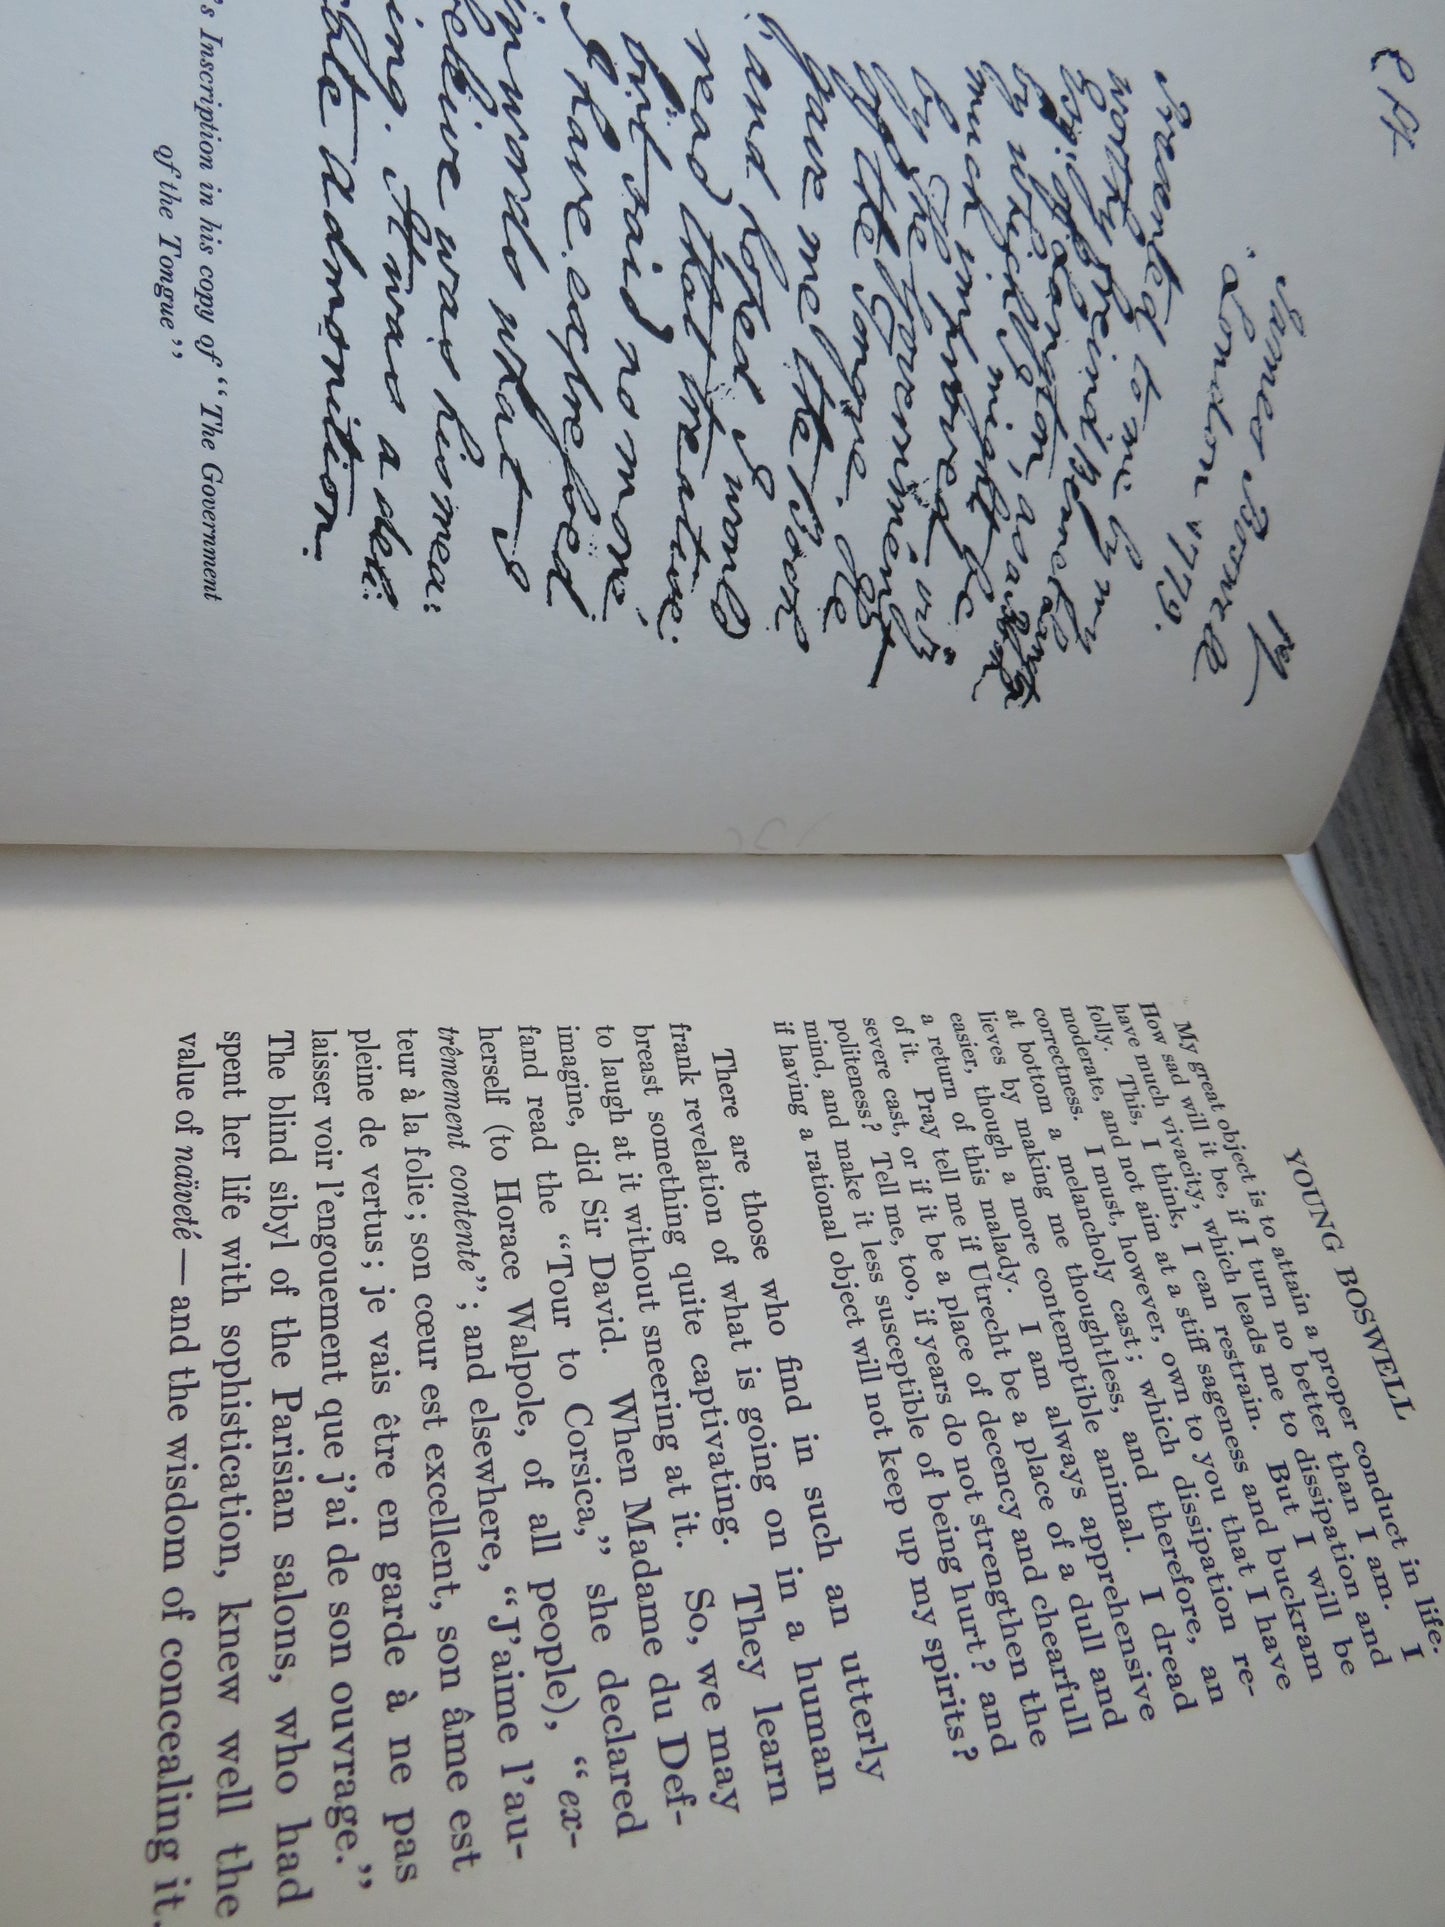 James Boswell
London 1779.
Presented to me by my
worthy freind Bennet Langton
Esq; of Langton, as a Book
by which I might be
much improved viz.
by the Government
of the Tongue. He
gave me the Book
and hoped I would
read that treatise;
but said no more.
I have expressed
in words what I
eleive was his mea:
ing. It was a deli:
cate admonition.
's Inscription in his copy of “The Government
of the Tongue”
YOUNG BOSWELL
My great object is to attain a proper conduct in life.
How sad will it be, if I turn no better than I am. I
have much vivacity, which leads me to dissipation and
folly. This, I think, I can restrain. But I will be
moderate, and not aim at a stiff sageness and buckram
correctness. I must, however, own to you that I have
at bottom a melancholy cast; which dissipation re-
lieves by making me thoughtless, and therefore, an
easier, though a more contemptible animal. I dread
a return of this malady. I am always apprehensive
of it. Pray tell me if Utrecht be a place of a dull and
severe cast, or if it be a place of decency and chearfull
politeness? Tell me, too, if years do not strengthen the
mind, and make it less susceptible of being hurt? and
if having a rational object will not keep up my spirits?
There are those who find in such an utterly
frank revelation of what is going on in a human
breast something quite captivating. They learn
to laugh at it without sneering at it. So, we may
imagine, did Sir David. When Madame du Def-
fand read the “Tour to Corsica,” she declared
herself (to Horace Walpole, of all people), “ex-
trêmement contente”; and elsewhere, “J'aime l'au-
teur à la folie; son cœur est excellent, son âme est
pleine de vertus; je vais être en garde à ne pas
laisser voir l'engouement que j'ai de son ouvrage.”
The blind sibyl of the Parisian salons, who had
spent her life with sophistication, knew well the
value of naïveté — and the wisdom of concealing it.